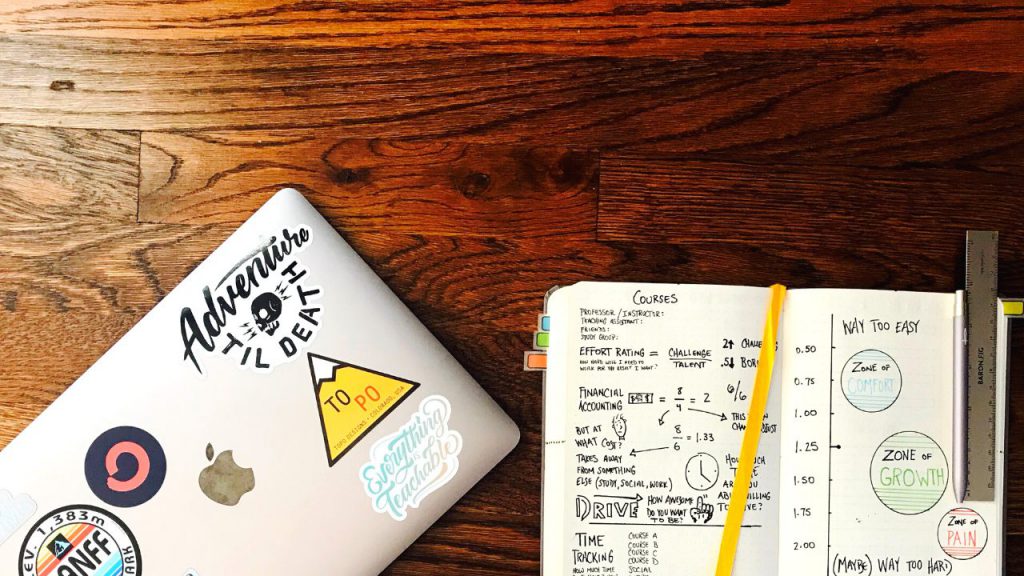 Adventure
TIL DEATH
TO
PO
TOPO DESIGNS · COLORADO, USA
Everything
is
Teachable
ELEV. 1,383m
BANFF
COURSES
PROFESSOR / INSTRUCTOR:
TEACHING ASSISTANT:
FRIENDS:
STUDY GROUP:
EFFORT RATING = CHALLENGE
TALENT
HOW HARD WILL I NEED TO
WORK FOR THE RESULT I WANT?
2↑
.5↓
FINANCIAL
ACCOUNTING
= 8/4 = 2
6/6
8/6 = 1.33
BUT AT
WHAT COST?
TAKES AWAY
FROM SOMETHING
ELSE (STUDY, SOCIAL, WORK)
DRIVE
HOW AWESOME
DO YOU WANT
TO BE?
TIME
TRACKING
HOW MUCH TIME
COURSE A
COURSE B
COURSE C
COURSE D
SOCIAL
WAY TOO EASY
0.50
0.75
1.00
1.25
1.50
1.75
2.00
ZONE OF
COMFORT
ZONE OF
GROWTH
ZONE OF
PAIN
(MAYBE) WAY TOO HARD
BARON FIG